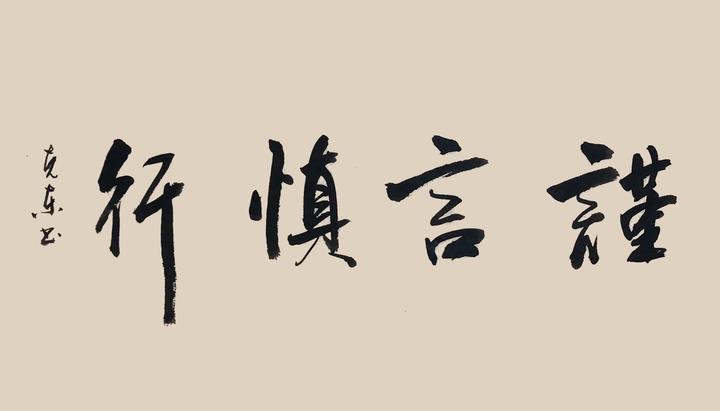 謹言慎行
克东书